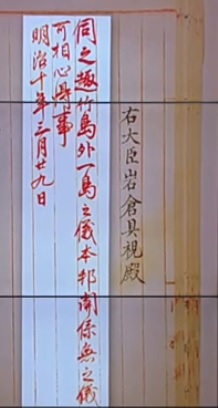 右大臣岩倉具視殿
伺之趣竹島外一島之儀本邦関係無之儀
可相心得事
明治十年三月廿九日